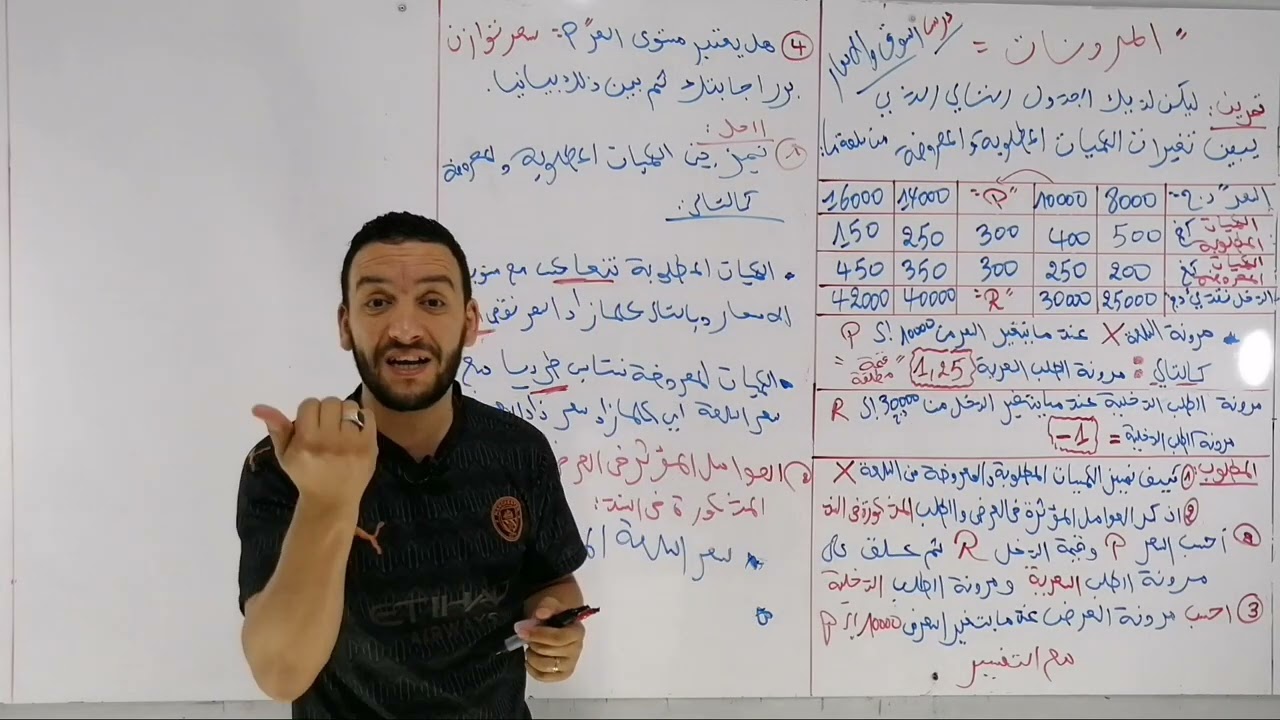 "المرونات"=
درس السوق والأسعار
تمرين: ليكن لديك الجدول التالي الذي
يبين تغيرات الكميات المطلوبة والمعروضة من سلعة ما:
السعر "دج" 8000 10000 "P" 14000 16000
الكميات المطلوبة كغ 500 400 300 250 150
الكميات المعروضة كغ 200 250 300 350 450
الدخل نقدي دج 25000 30000 "R" 40000 42000
مرونة السلعة X عند ما يتغير السعر من 10000 إلى P
كالتالي: مرونة الطلب السعرية 1,25 "قيمة مطلقة"
مرونة الطلب الدخلية عند ما يتغير الدخل من 30000 إلى R
مرونة الطلب الدخلية = -1
المطلوب: 1 كيف تميز الكميات المطلوبة والمعروضة من السلعة X
2 اذكر العوامل المؤثرة في العرض والطلب المذكورة في السند
أحسب السعر P وقيمة الدخل R ثم علق على
مرونة الطلب السعرية ومرونة الطلب الدخلية
3 احسب مرونة العرض عند ما يتغير السعر من 10000 إلى P
مع التفسير
4 هل يعتبر مستوى السعر "P" سعر توازن
برر اجابتك ثم بين ذلك بيانيا.
الحل:
1 نميز بين الكميات المطلوبة والمعروضة
كالتالي:
الكميات المطلوبة تتعاكس مع
الاسعار وبالتالي كلما زاد السعر نقص
الكميات المعروضة تتناسب طرديا مع
سعر السلعة اي كلما زاد سعر زاد
2 العوامل المؤثرة في العرض
المذكورة في السند:
سعر السلعة
ETIHAD
AIRWAYS